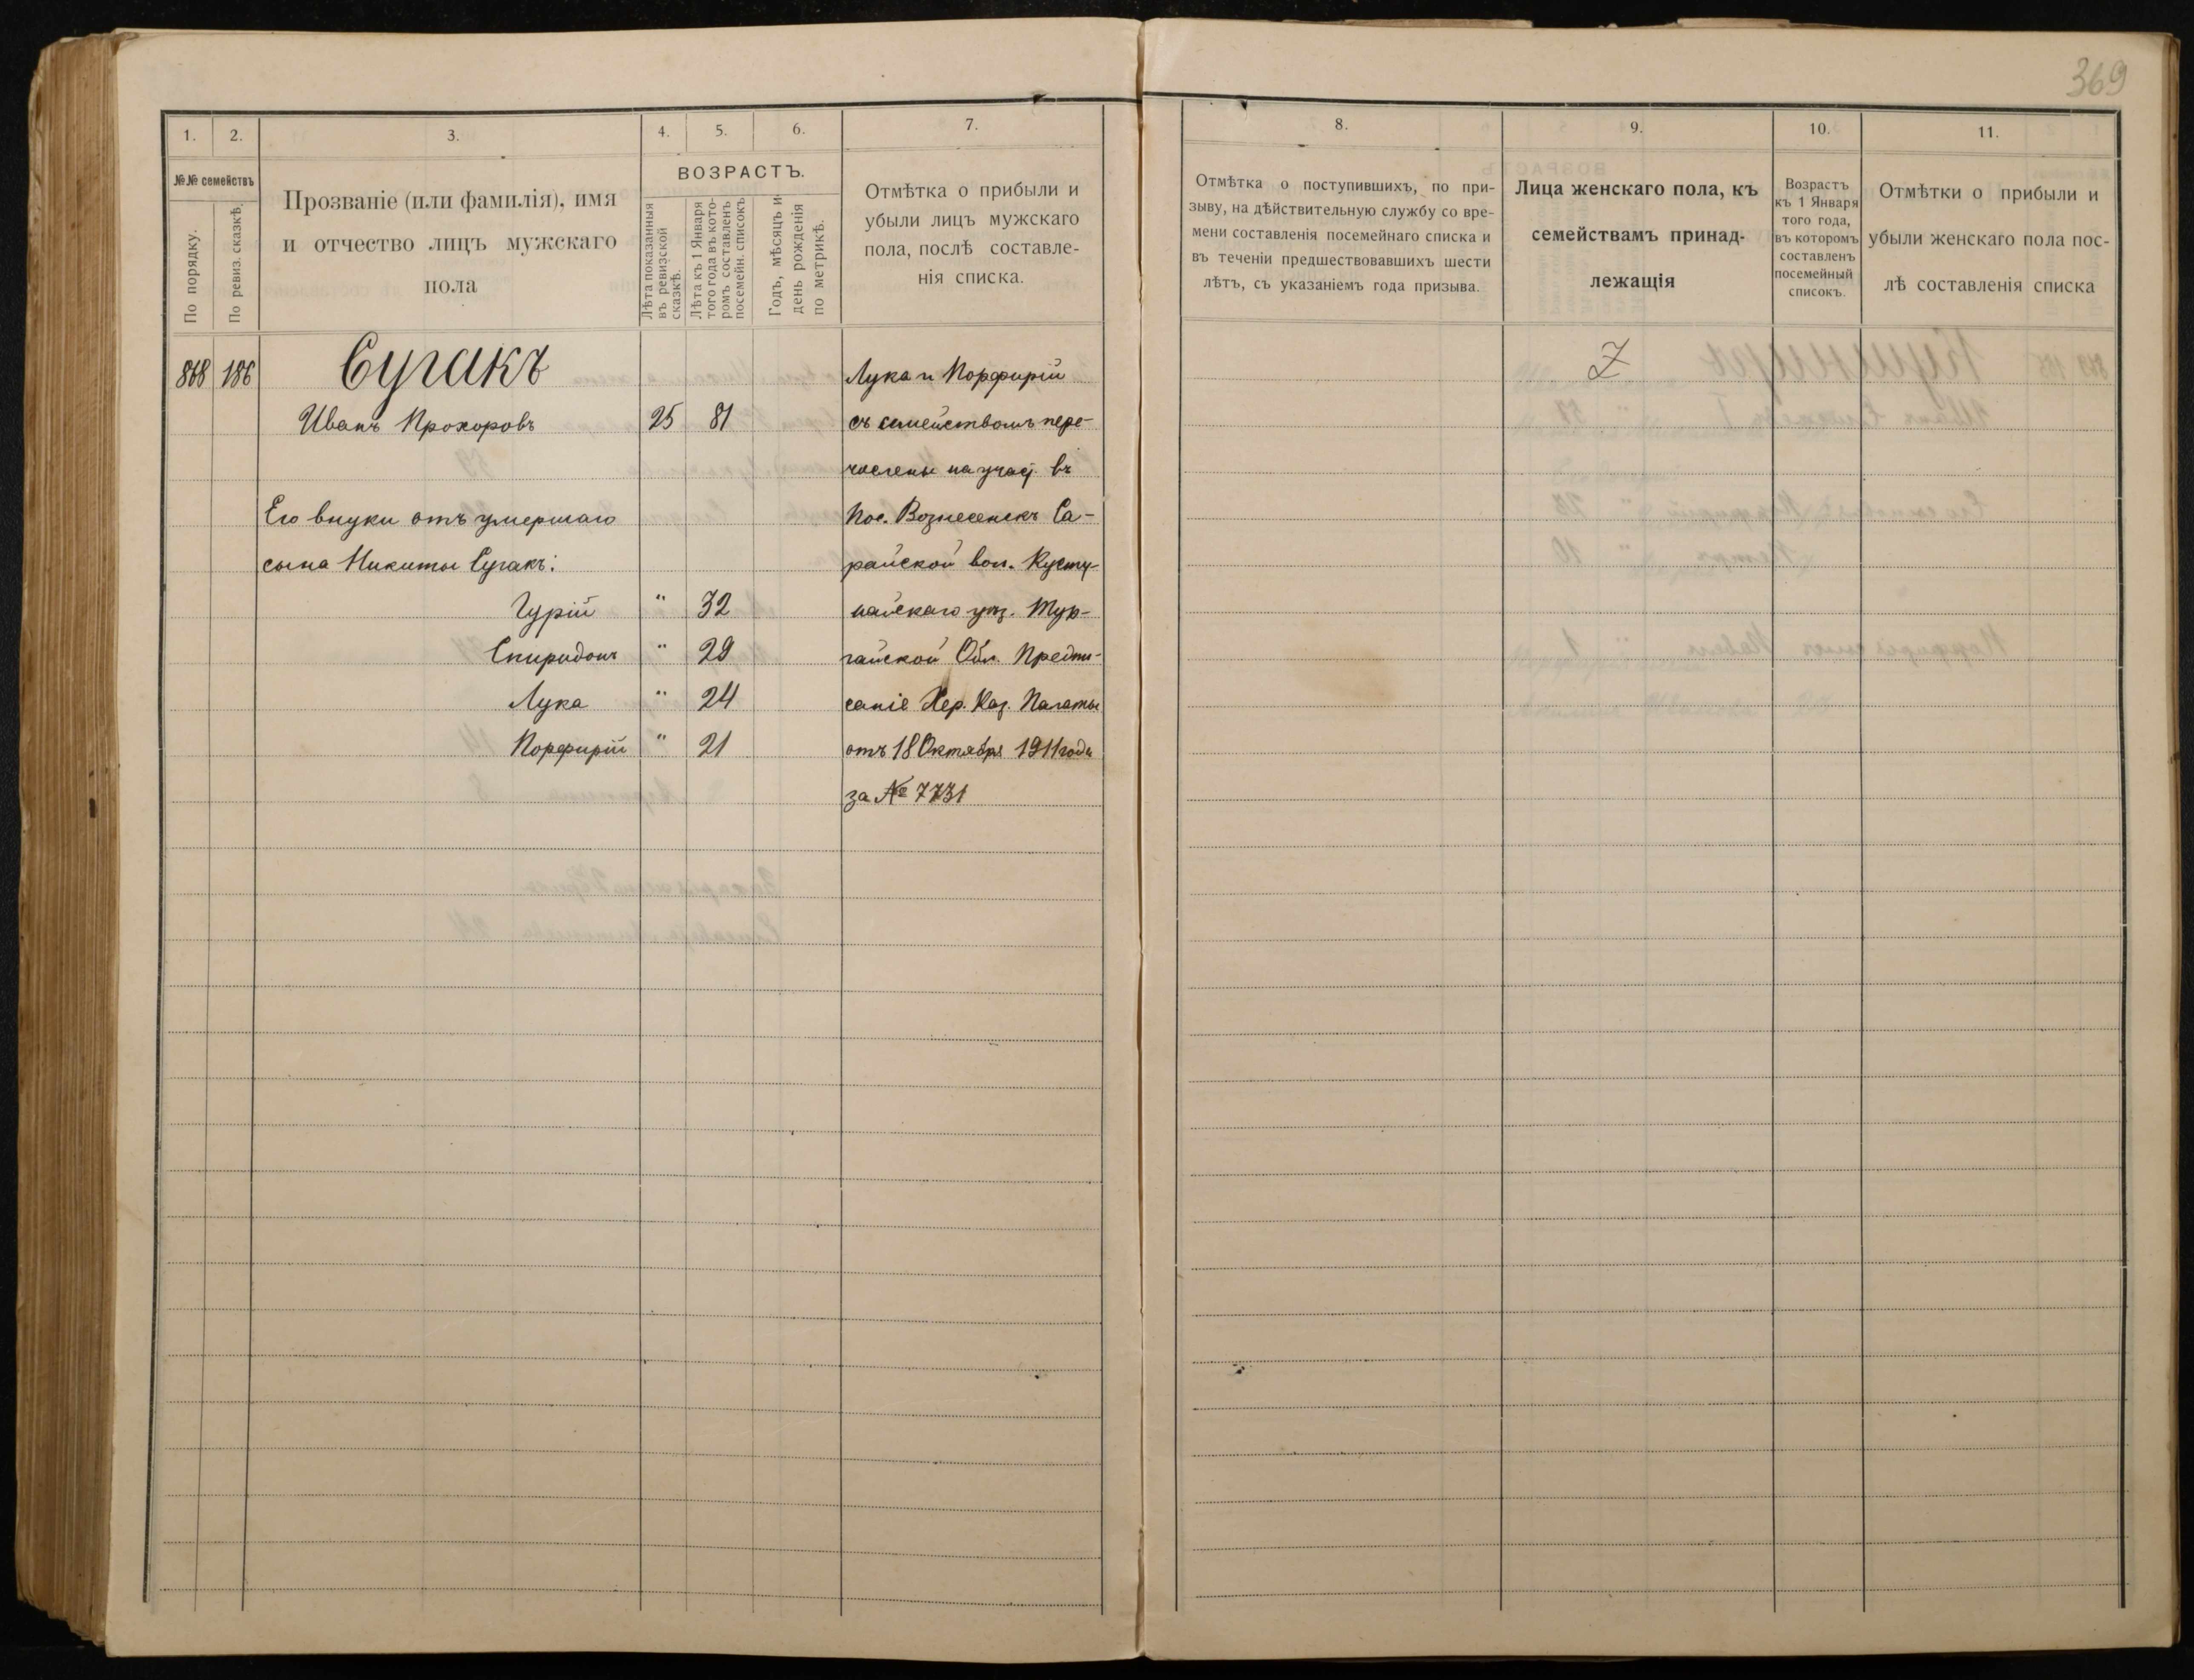 369
1.
2.
3.
4.
5.
6.
7.
8.
9.
10.
11.
№№ семействъ
По порядку.
По ревиз. сказкѣ.
Прозваніе (или фамилія), имя
и отчество лицъ мужскаго
пола
ВОЗРАСТЪ.
Лѣта показанныя
въ ревизской
сказкѣ.
Лѣта къ 1 Января
того года въ кото-
ромъ составленъ
посемейн. списокъ
Годъ, мѣсяцъ и
день рожденія
по метрикѣ.
Отмѣтка о прибыли и
убыли лицъ мужскаго
пола, послѣ составле-
нія списка.
Отмѣтка о поступившихъ, по при-
зыву, на дѣйствительную службу со вре-
мени составленія посемейнаго списка и
въ теченіи предшествовавшихъ шести
лѣтъ, съ указаніемъ года призыва.
Лица женскаго пола, къ
семействамъ принад-
лежащія
Возрастъ
къ 1 Января
того года,
въ которомъ
составленъ
посемейный
списокъ.
Отмѣтки о прибыли и
убыли женскаго пола пос-
лѣ составленія списка
868 186 Сугакъ
Иванъ Прохоровъ 25 81
Его внуки отъ умершаго
сына Никиты Сугакъ:
Гурій " 32
Спиридонъ " 29
Лука " 24
Порфирій " 21
Лука и Порфирій
съ семействомъ пере-
числены на учас. въ
Пос. Вознесенскъ Са-
райской вол. Куста-
найскаго уѣз. Тур-
гайской Обл. Предпи-
саніе Хер. Каз. Палаты
отъ 18 Октября 1911 года
за № 7731
Z